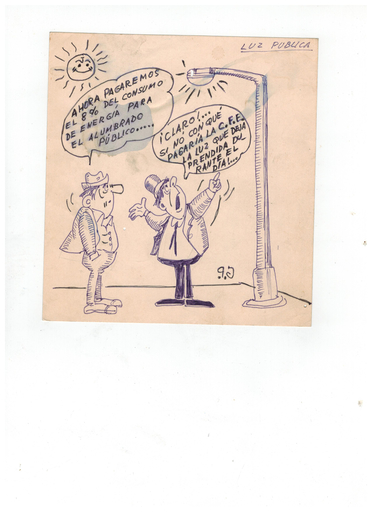 LUZ PUBLICA
AHORA PAGAREMOS
EL 8% DEL CONSUMO
DE ENERGÍA PARA
EL ALUMBRADO
PÚBLICO.....
¡CLARO!...
SI NO CON QUÉ
PAGARÍA LA C.F.E.
LA LUZ QUE DEJA
PRENDIDA DU
RANTE EL
DÍA!...